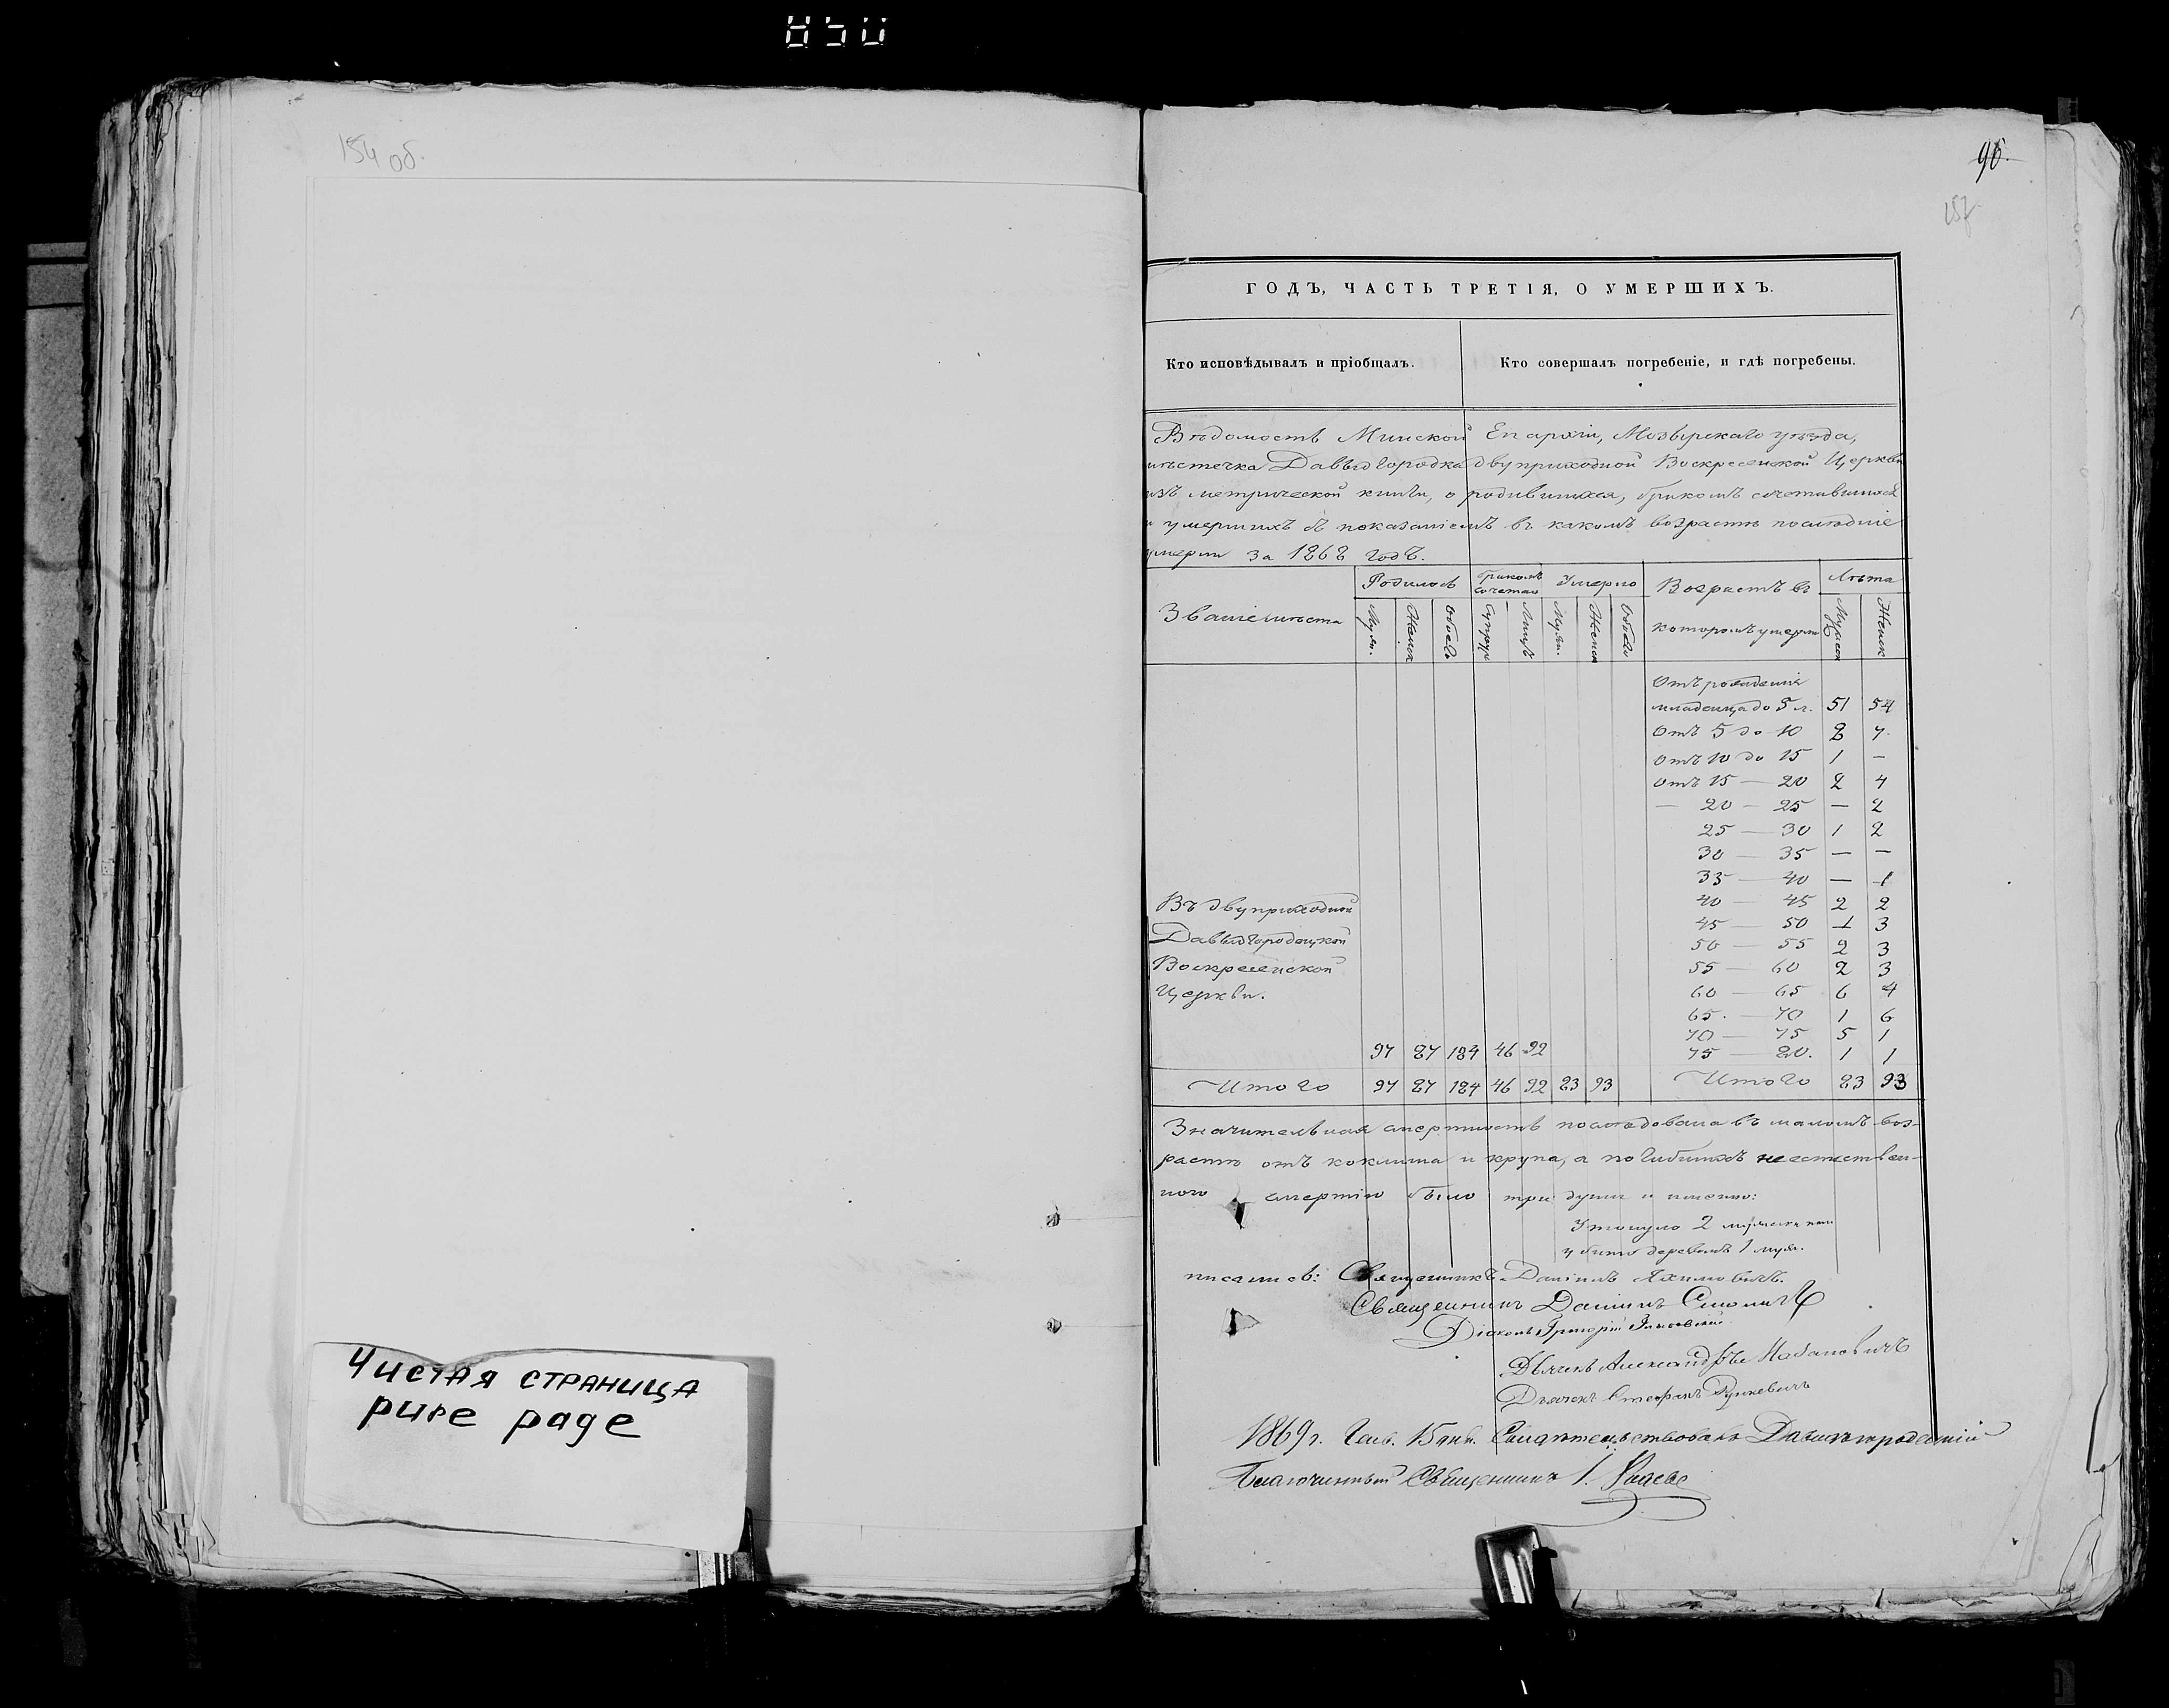 850
154 об.
96.
157
ГОДЪ, ЧАСТЬ ТРЕТІЯ, О УМЕРШИХЪ.
Кто исповѣдывалъ и пріобщалъ.
Кто совершалъ погребеніе, и гдѣ погребены.
Вѣдомость Минской Епархіи, Мозырскаго уѣзда,
мѣстечка Давыдгородка двуприходной Воскресенской Церкви
изъ метрической книги, о родившихся, бракомъ сочетавшихся
и умершихъ съ показаніемъ въ какомъ возрастѣ послѣдніе
умерли за 1868 годъ.
Званіе мѣста
Родилось
бракомъ сочетал
Умерло
Возрастъ въ которомъ умерли
Лѣта
Муж. Женск обоего Супруж Лицъ Муж. Женск Обоего Мужеск Женск
Отъ рожденія
младенца до 5 л. 51 54
Отъ 5 до 10 8 7
Отъ 10 до 15 1 —
Отъ 15 — 20 2 4
— 20 — 25 — 2
25 — 30 1 2
30 — 35 — —
35 — 40 — 1
Въ двуприходной 40 — 45 2 2
Давыдгородецкой 45 — 50 1 3
50 — 55 2 3
Воскресенской 55 — 60 2 3
Церкви. 60 — 65 6 4
65. — 70 1 6
70 — 75 5 1
97 87 184 46 92 75 — 80. 1 1
Итого 97 87 184 46 92 83 93 Итого 83 93
Значительная смертность послѣдовала въ маломъ воз-
растѣ отъ коклюша и крупа, а погибшихъ неестествен-
ною смертію было три души и именно:
Утонуло 2 мужеск пола
убито деревомъ 1 муж.
писались: Священникъ Даніилъ Яхимовичъ.
Священникъ Даніилъ
Діаконъ Григорій
Дьячекъ Александръ
Дьячекъ Стефанъ
1869 г. Генв. 15 дня. Свидѣтельствовалъ Давыдгородецкій
Благочинный Священникъ І.
Чистая страница
pure page